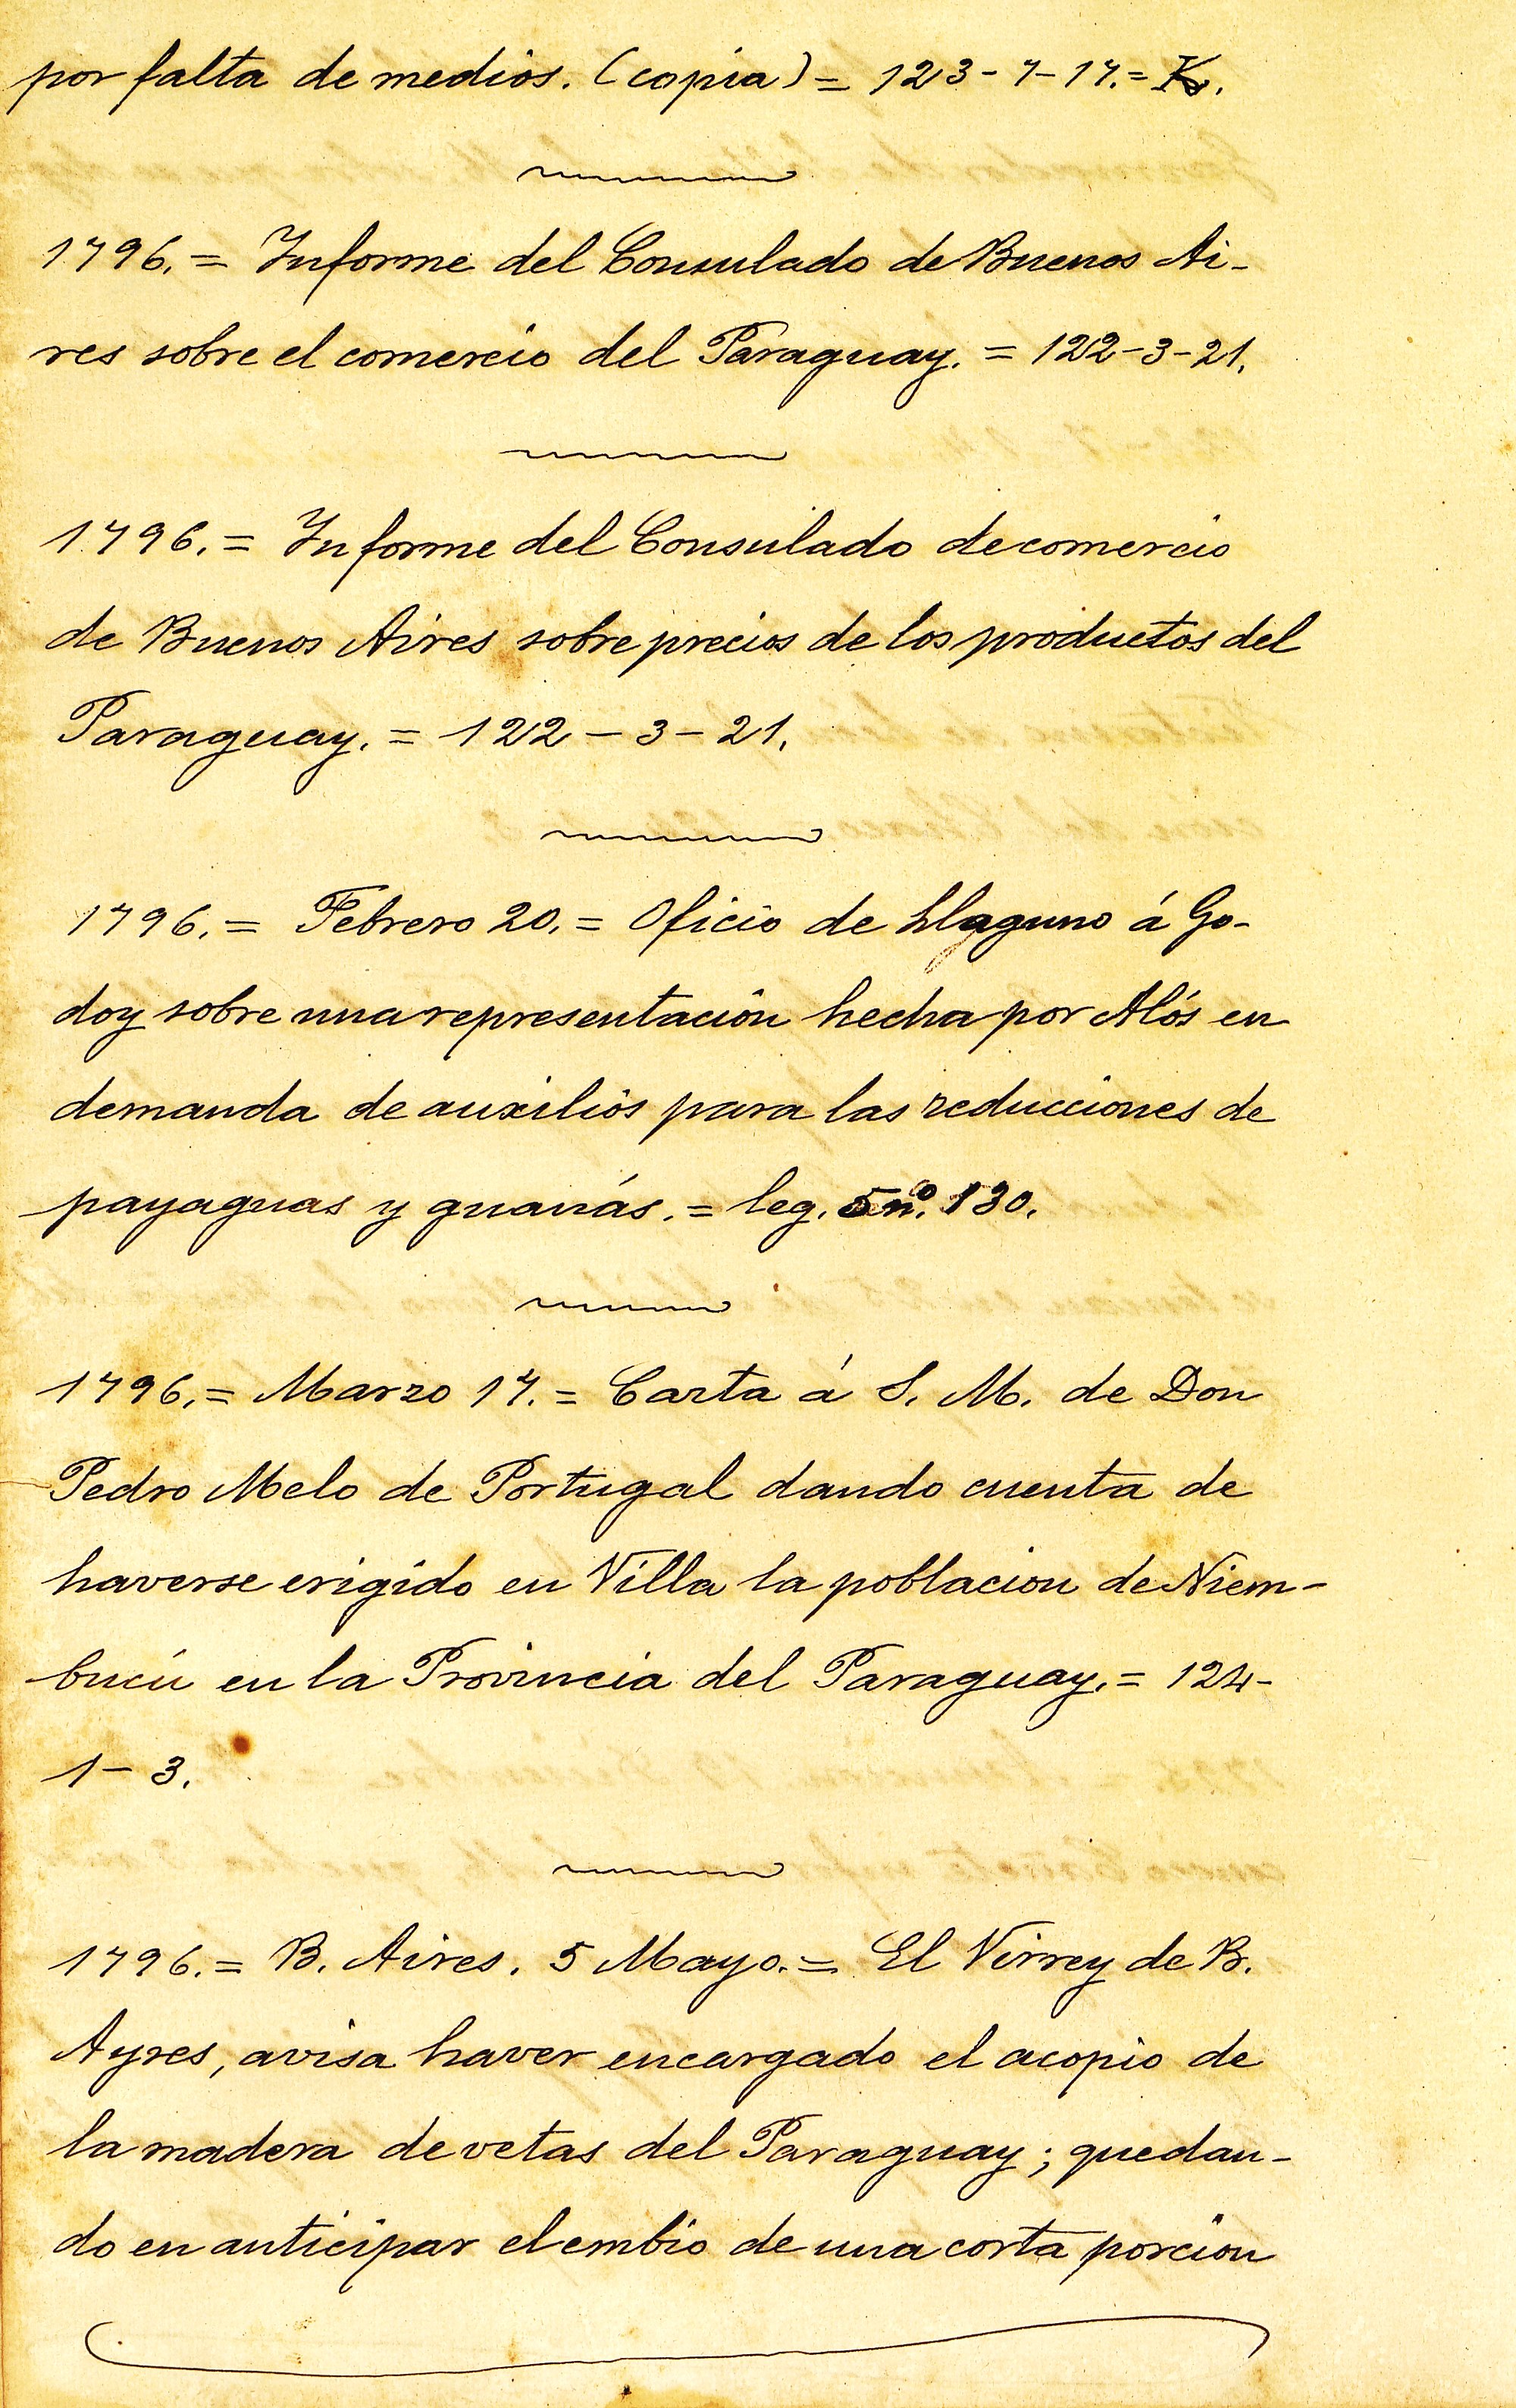 por falta de medios. (copia) = 123-7-17. =
1796. = Informe del Consulado de Buenos Ai-
res sobre el comercio del Paraguay. = 122-3-21.
1796. = Informe del Consulado de comercio
de Buenos Aires sobre precios de los productos del
Paraguay. = 122-3-21.
1796. = Febrero 20. = Oficio de Llaguno á Go-
doy sobre una representación hecha por Alós en
demanda de auxilios para las reducciones de
payaguas y guanás. = leg. 5 nº. 130.
1796. = Marzo 17. = Carta á S. M. de Don
Pedro Melo de Portugal dando cuenta de
haverse erigido en Villa la poblacion de Niem-
bucú en la Provincia del Paraguay. = 124-
1-3.
1796. = B. Aires. 5 Mayo. = El Virrey de B.
Ayres, avisa haver encargado el acopio de
la madera de vetas del Paraguay; quedan-
do en anticipar el embio de una corta porcion